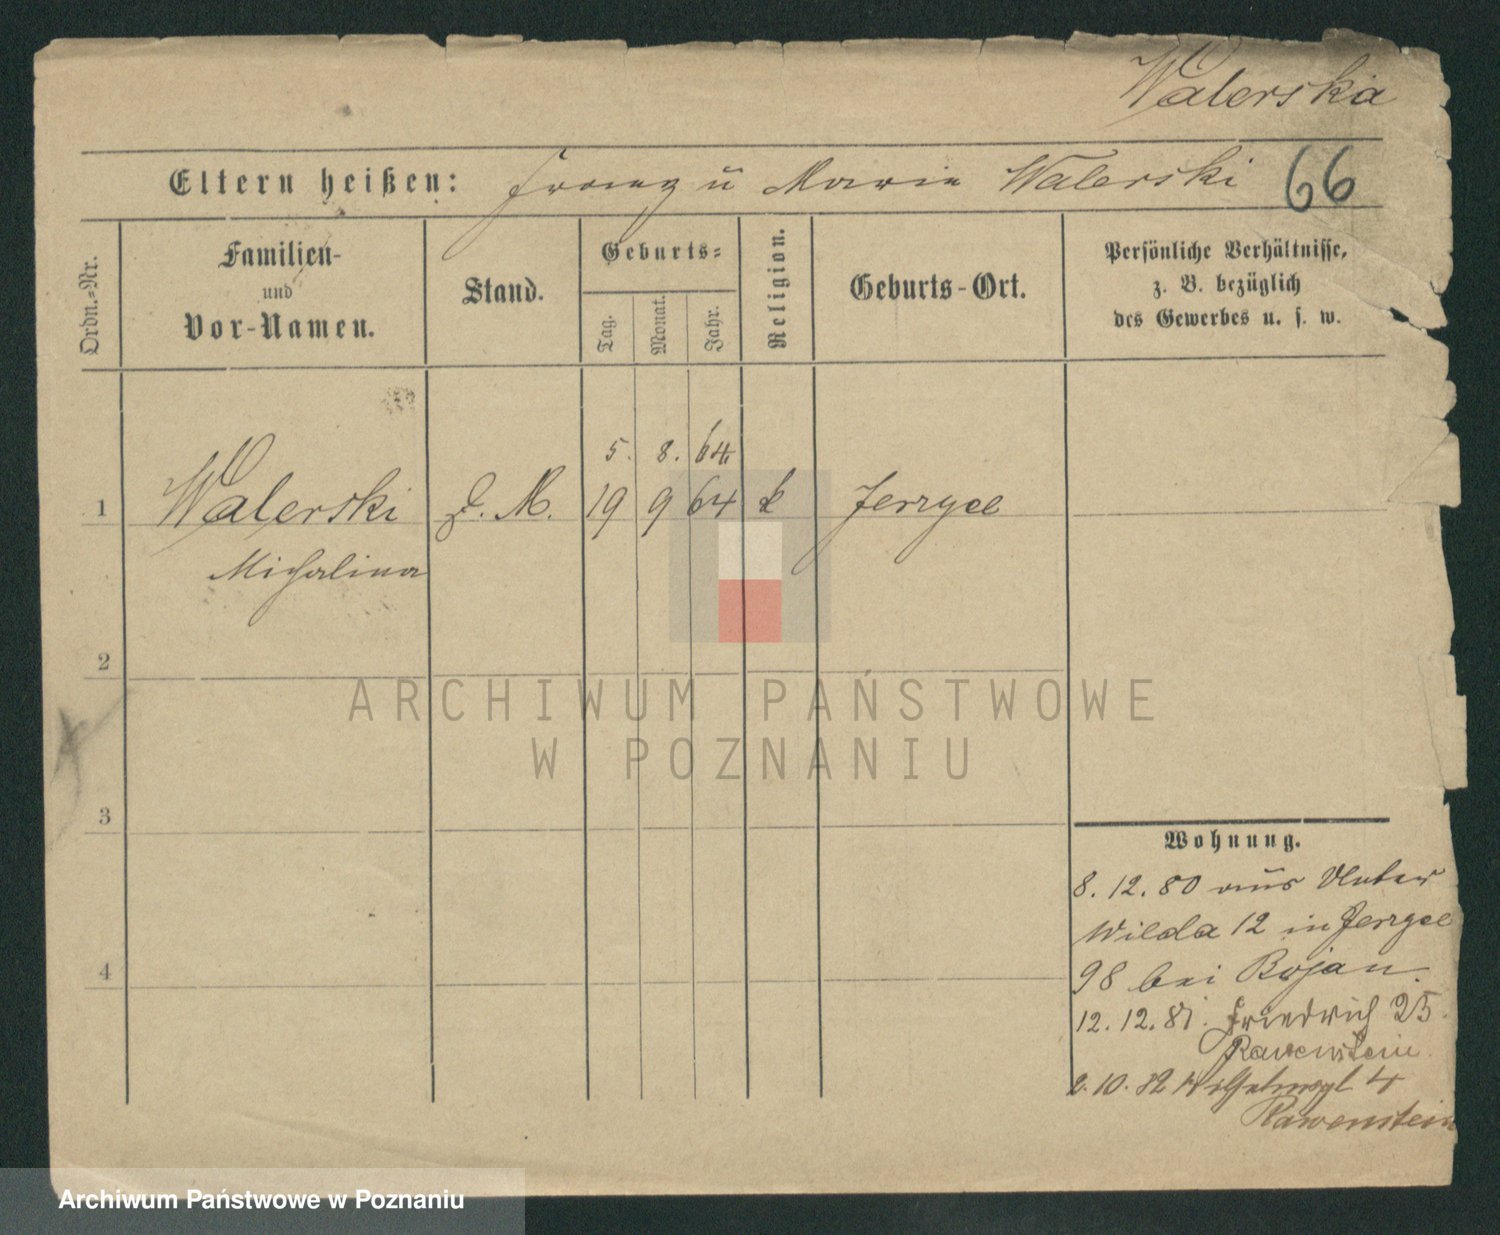 Walerska
Eltern heißen: Franz u Marie Walerski 66
Ordn.=Nr.
Familien-
und
Vor-Namen.
Stand.
Geburts=
Tag.
Monat.
Jahr.
Religion.
Geburts-Ort.
Persönliche Verhältnisse,
z. B. bezüglich
des Gewerbes u. s. w.
5. 8. 64
1 Walerski D. M. 19 9 64 k Jerzyce
Michalina
2
ARCHIWUM PAŃSTWOWE
W POZNANIU
3
Wohnung.
8. 12. 80 aus Unter
Wilda 12 in Jerzyce
4
98 bei Bojan.
12. 12. 81. Friedrich 25.
Rawenstein.
2. 10. 82 4
Rawenstein
Archiwum Państwowe w Poznaniu